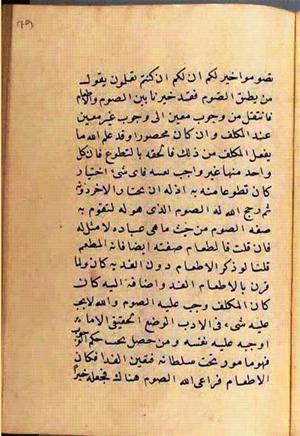 تصوموا خير لكم ان لكم ان كنتم تعلمون يقول
من يطيق الصوم فقد خيرنا بين الصوم والاطعام
فانتقل من وجوب معين الى وجوب غير معين
عند المكلف وان كان محصورا وقد علم الله ما
يفعل المكلف من ذلك فالحقه بالتطوع فان كل
واحد منها غير واجب لعينه فاى شىء اختار
كان تطوعا منه به اذ له ان يختار الاخر دونه
ثم رجح الله له الصوم الذى هو له لتقوم به
صفه الصوم من حيث ما هى عباده لا مثل له
فان قلت فالطعام صفته ايضا فانه المطعم
قلنا لو ذكر الاطعام دون الفديه كان ولما
قرن بالاطعام الفديه واضافه اليه كان
كان المكلف وجب عليه الصوم والله لا يجب
عليه شىء فى الادب الوضعى الحقيقى الا ما
اوجبه عليه نفسه ومن حصل تحت حكم الوجوب
فهو ماسور تحت سلطانه فتعين الفدا فكان
الاطعام فراعى الله الصوم هناك فجعله خيرا